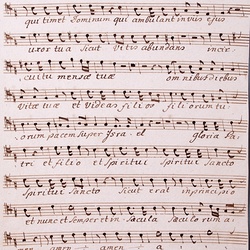 qui timet Dominum qui ambulant in viis ejus
uxor tua sicut Vitis abundans in cir=
cuitu mensæ tuæ omnibus diebus
vitæ tuæ et Videas filios filiorum tu=
orum pacem super Israel gloria Pa
tri et filio et Spiritui Spiritui Sancto
Spiritui Sancto Sicut erat in principio
et nunc et semper et in Sæcula Sæculorum a
men amen amen a